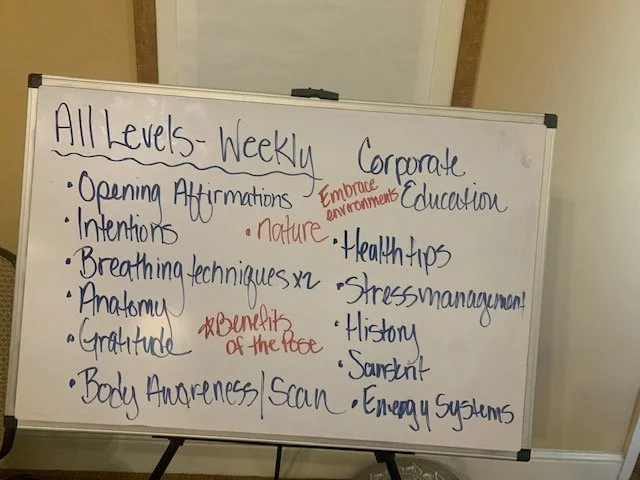 All Levels - Weekly
• Opening Affirmations
• Intentions
• nature
• Breathing techniques x2
• Anatomy
• Gratitude
* Benefits
of the Pose
• Body Awareness/Scan
Corporate
Embrace
environments
Education
• Health tips
• Stress management
• History
• Sanskrit
• Energy Systems